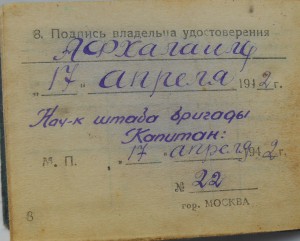 8. Подпись владельца удостоверения
„17“ апреля 1942 г.
Нач-к штаба бригады
Капитан:
М. П. „17“ апреля 1942 г.
№ 22
гор. МОСКВА
8